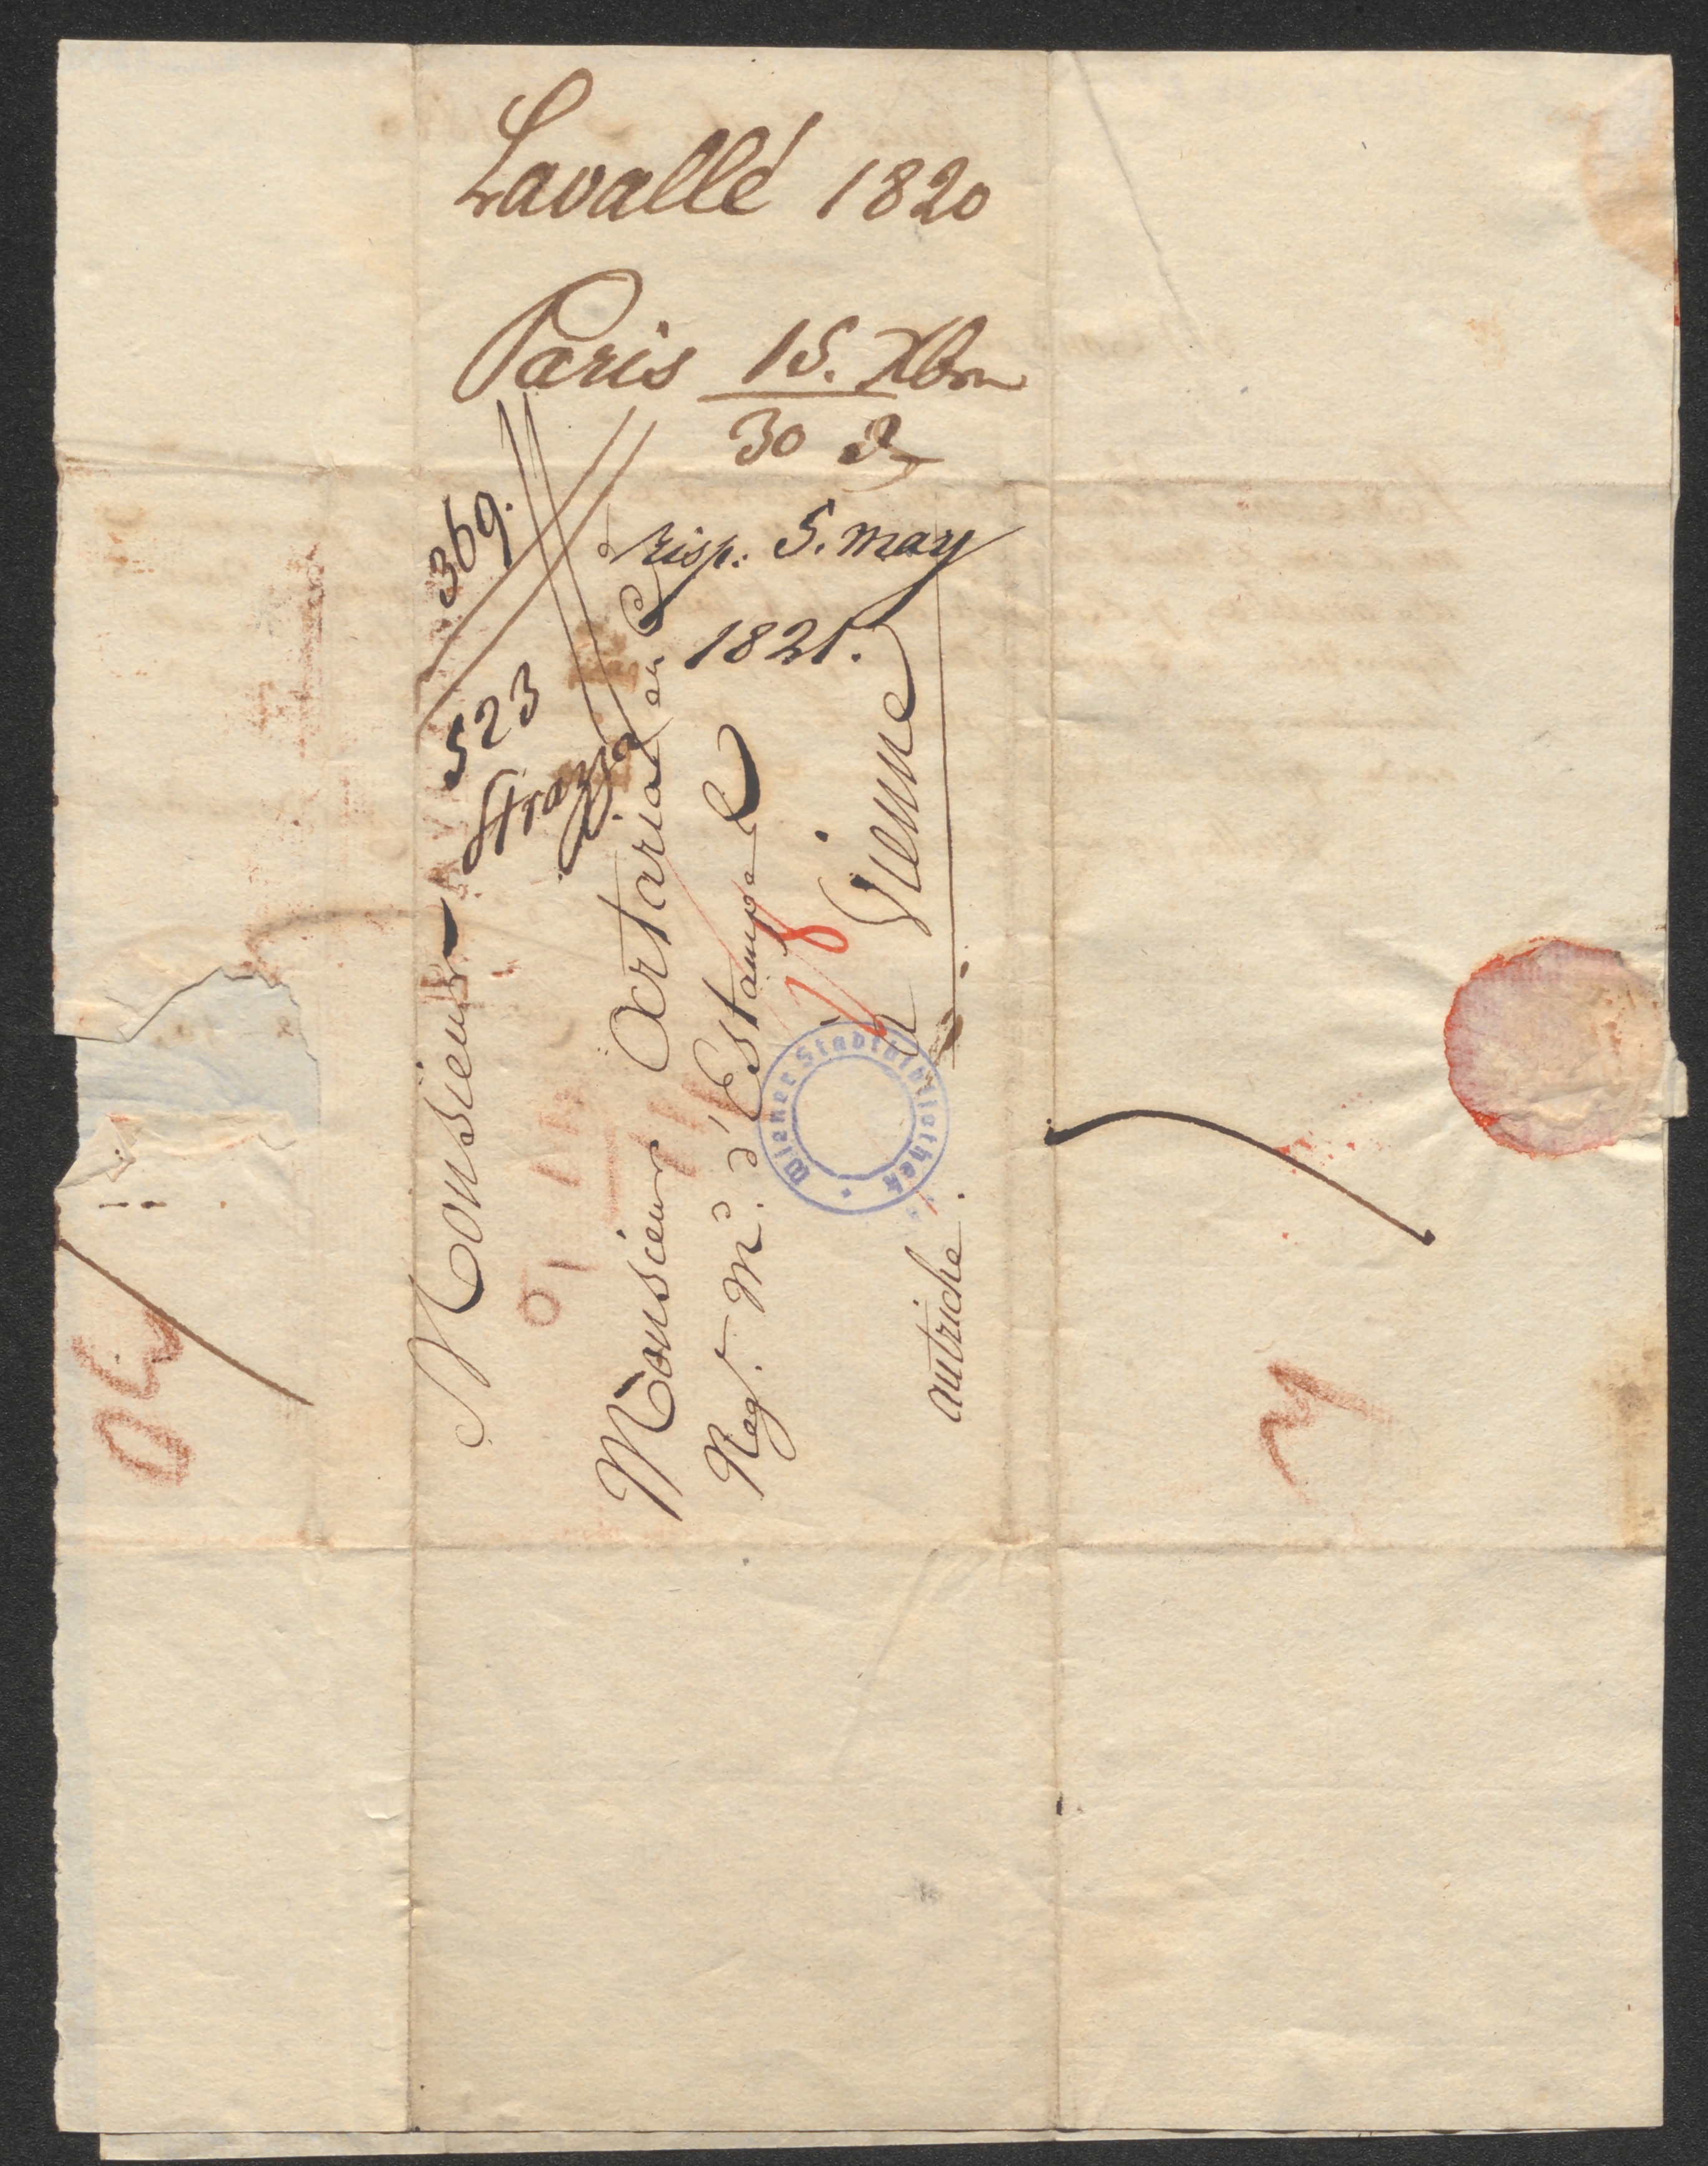 Lavallé 1820
Paris 15. Xbre
30 d
Risp. 5. may
1821.
369.
523
Strazza
Monsieur
Monsieur Artaria et C
Negt. Md. d'Estampe
à Vienne
autriche.
Wiener Stadtbibliothek